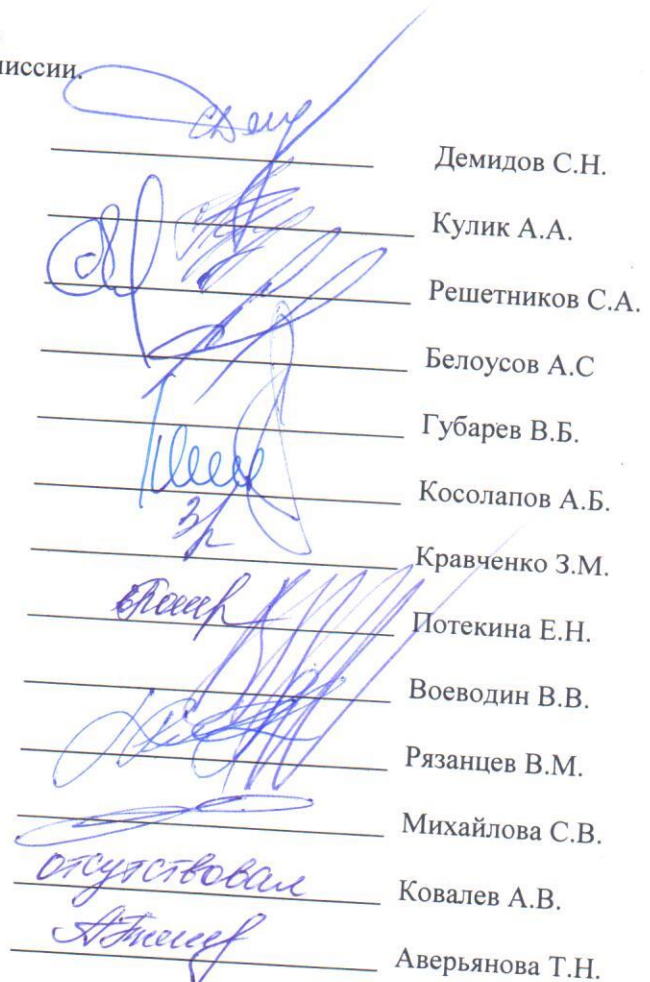 миссии.
Демидов С.Н.
Кулик А.А.
Решетников С.А.
Белоусов А.С
Губарев В.Б.
Косолапов А.Б.
Кравченко З.М.
Потекина Е.Н.
Воеводин В.В.
Рязанцев В.М.
Михайлова С.В.
отсутствовал Ковалев А.В.
Аверьянова Т.Н.